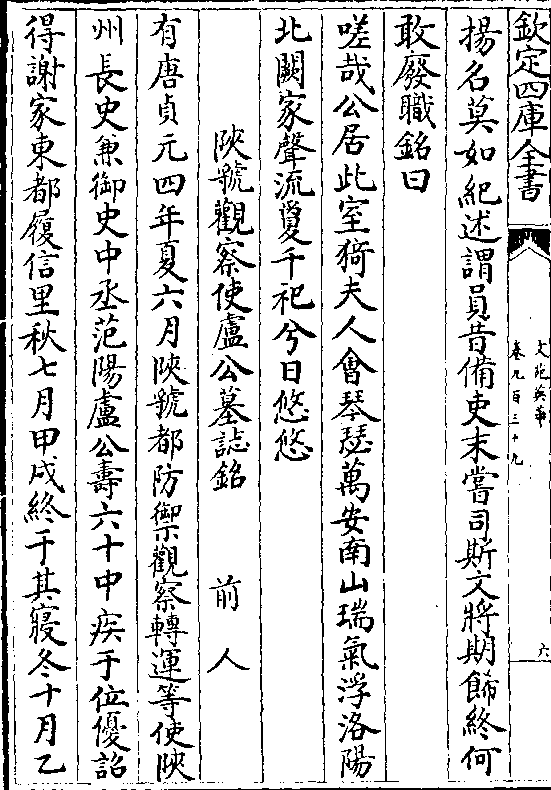 欽定四庫全書
文苑英華
卷九百三十九
六
揚名莫如紀述謂員昔備吏末嘗司斯文將期飾終何
敢廢職銘曰
嗟哉公居此室猗夫人會琴瑟萬安南山瑞氣浮洛陽
北闕家聲流夐千祀兮日悠悠
陜虢觀察使盧公墓誌銘 前人
有唐貞元四年夏六月陜虢都防禦觀察轉運等使陜
州長史兼御史中丞范陽盧公壽六十中疾于位優詔
得謝家東都履信里秋七月甲戌終于其寢冬十月乙